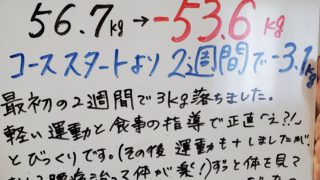 56.7kg → -53.6kg
コーススタートより2週間で-3.1kg
最初の2週間で3kg落ちました。
軽い運動と食事の指導で正直「え?!」
とびっくりです。(その後 運動も+しましたが
腰痛治って体が楽!ずっと体を見て